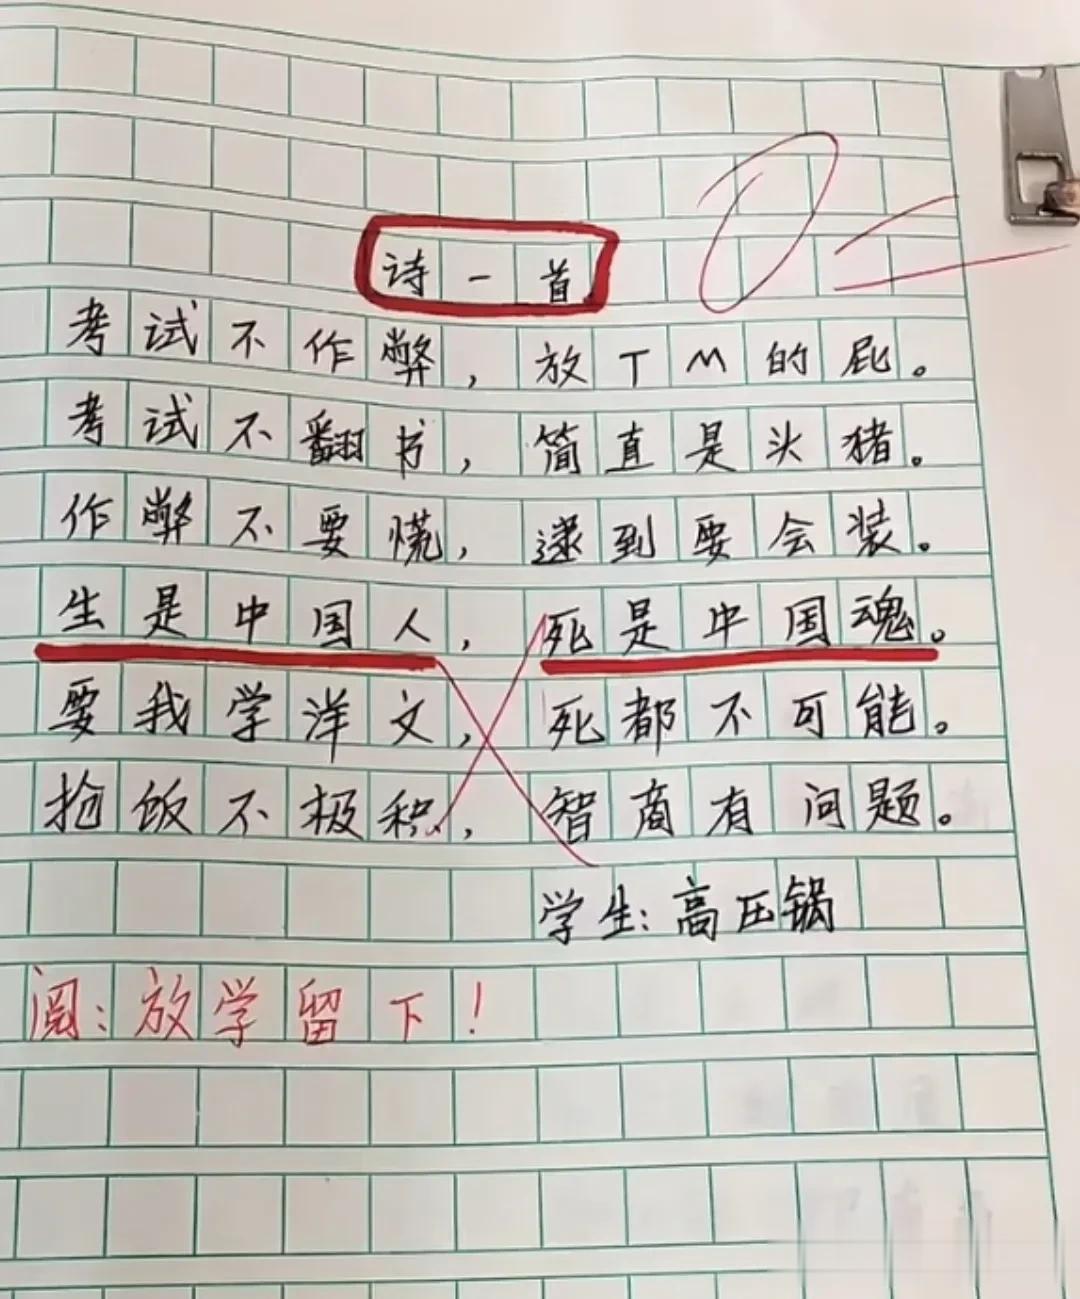 诗一首
考试不作弊，放TM的屁。
考试不翻书，简直是头猪。
作弊不要慌，逮到要会装。
生是中国人，死是中国魂。
要我学洋文，死都不可能。
抢饭不极积，智商有问题。
学生：高压锅
阅：放学留下！